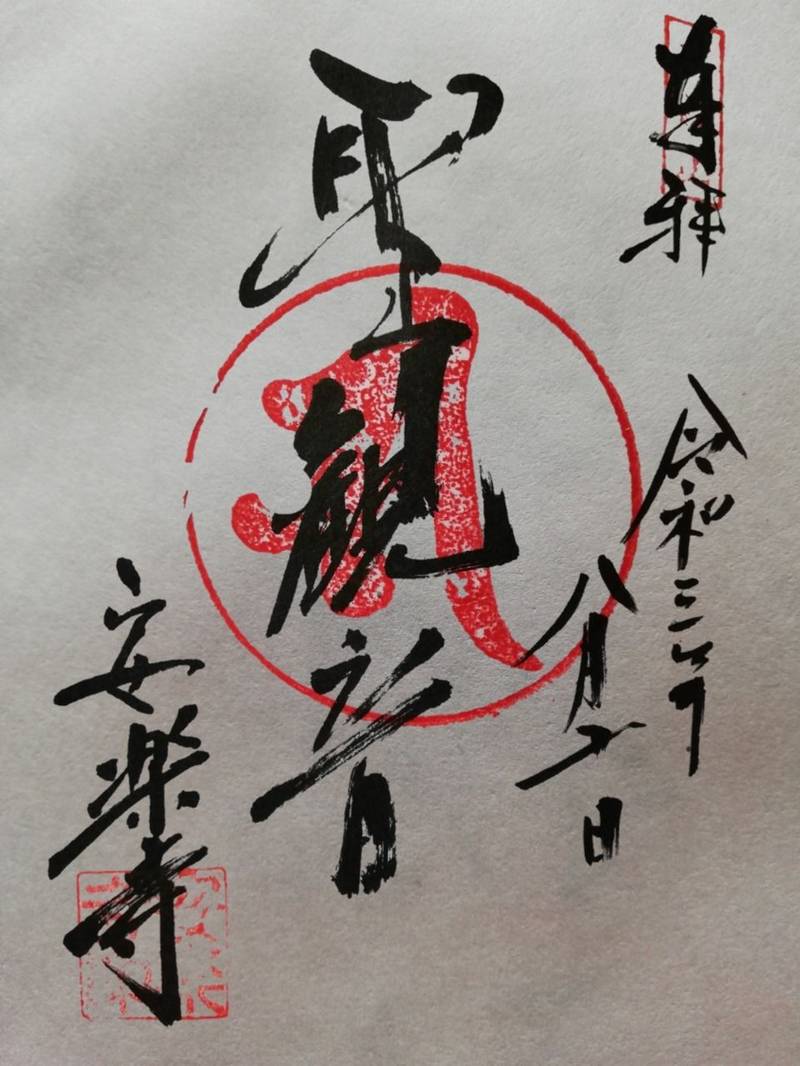 奉拝
令和三年
八月九日
聖観音
安楽寺